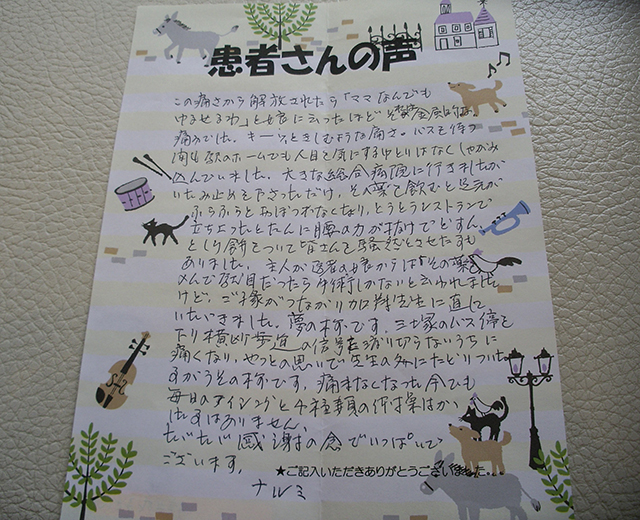 患者さんの声
この痛さから解放されたら「ママなんでも
ゆるせるわ」と娘に言ったほど 金属的な
痛みでした。キーッときしむような痛さ。バスを待つ
間も駅のホームでも人目を気にするゆとりはなくしゃがみ
込んでいました。大きな総合病院に行きましたが
いたみ止めを下さっただけ、その薬を飲むと足元が
ふらふらとおぼつかなくなり、とうとうレストランで
立ち上ったとたんに腰の力が抜けてどすん
としり餅をついて皆さんを騒然とさせた事も
ありました。主人が医者の娘からは「その薬を
のんで駄目だったら手術しかない」と云われました
けど、ご縁がつながり加 先生に直して
いただきました。夢の様です。三 のバス停を
下り横断歩道の信号を渡り切らないうちに
痛くなり、やっとの思いで先生の にたどりついた
すがうその様です。痛まなくなった今でも
毎日のアイシングと4種類の体操はか
はありません。
ただただ感謝の念でいっぱいで
ございます。
★ご記入いただきありがとうございました…
ナルミ